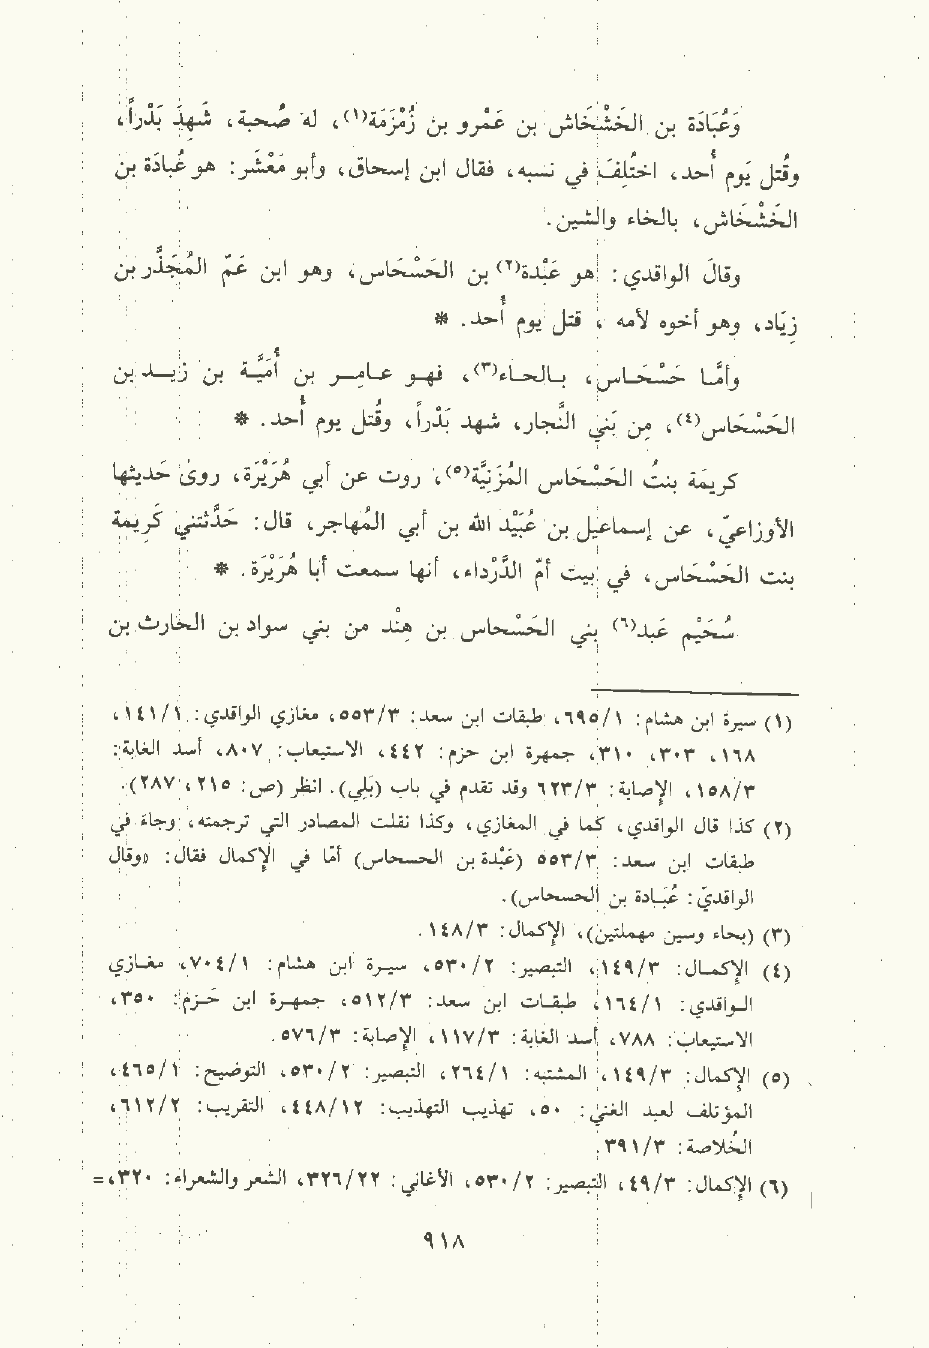 وَعُبَادَة بن الخَشْخَاش بن عَمْرو بن زُمْزَمَة(١)، له صُحبة، شَهِدَ بَدْراً،
وقُتل يَوم أُحد، اختُلِفَ في نسبه، فقال ابن إسحاق، وأبو مَعْشَر: هو عُبَادَة بن
الخَشْخَاش، بالخاء والشين.
وقالَ الواقدي: هو عَبْدة(٢) بن الحَسْحَاس، وهو ابن عَمّ المُجَذَّر بن
زِيَاد، وهو أخوه لأمه، قتل يوم أُحد. *
وأمَّا حَسْحَاس، بالحاء(٣)، فهو عامِر بن أُمَيَّة بن زيد بن
الحَسْحَاس(٤)، مِن بَني النَّجار، شهد بَدْراً، وقُتل يوم أُحد. *
كريمَة بنتُ الحَسْحَاس المُزَنِيَّة(٥)، روت عن أبي هُرَيْرَة، روىٰ حَديثها
الأوزاعيّ، عن إسماعيل بن عُبَيْد الله بن أبي المُهاجر، قال: حَدَّثتني كَرِيمة
بنت الحَسْحَاس، في بيت أمّ الدَّرْداء، أنها سمعت أبا هُرَيْرَة. *
سُحَيْم عَبد(٦) بني الحَسْحاس بن هِنْد من بني سواد بن الحارث بن
(١) سيرة ابن هشام: ٦٩٥/١، طبقات ابن سعد: ٥٥٣/٣، مغازي الواقدي: ١٤١/١،
١٦٨، ٣٠٣، ٣١٠، جمهرة ابن حزم: ٤٤٢، الاستيعاب: ٨٠٧، أسد الغابة:
١٥٨/٣، الإصابة: ٦٢٣/٣ وقد تقدم في باب (بَلِي). انظر (ص: ٢١٥، ٢٨٧).
(٢) كذا قال الواقدي، كما في المغازي، وكذا نقلت المصادر التي ترجمته، وجاءَ في
طبقات ابن سعد: ٥٥٣/٣ (عَبْدة بن الحسحاس) أمّا في الإكمال فقال: «وقال
الواقديّ: عُبَادة بن الحسحاس).
(٣) (بحاء وسين مهملتين)، الإكمال: ١٤٨/٣.
(٤) الإكمال: ١٤٩/٣، التبصير: ٥٣٠/٢، سيرة ابن هشام: ٧٠٤/١، مغازي
الواقدي: ١٦٤/١، طبقات ابن سعد: ٥١٢/٣، جمهرة ابن حَزم: ٣٥٠،
الاستيعاب: ٧٨٨، أسد الغابة: ١١٧/٣، الإصابة: ٥٧٦/٣.
(٥) الإكمال: ١٤٩/٣، المشتبه: ٢٦٤/١، التبصير: ٥٣٠/٢، التوضيح: ٤٦٥/١،
المؤتلف لعبد الغني: ٥٠، تهذيب التهذيب: ٤٤٨/١٢، التقريب: ٦١٢/٢،
الخُلاصة: ٣٩١/٣.
(٦) الإكمال: ٤٩/٣، التبصير: ٥٣٠/٢، الأغاني: ٣٢٦/٢٢، الشعر والشعراء: ٣٢٠،=
٩١٨